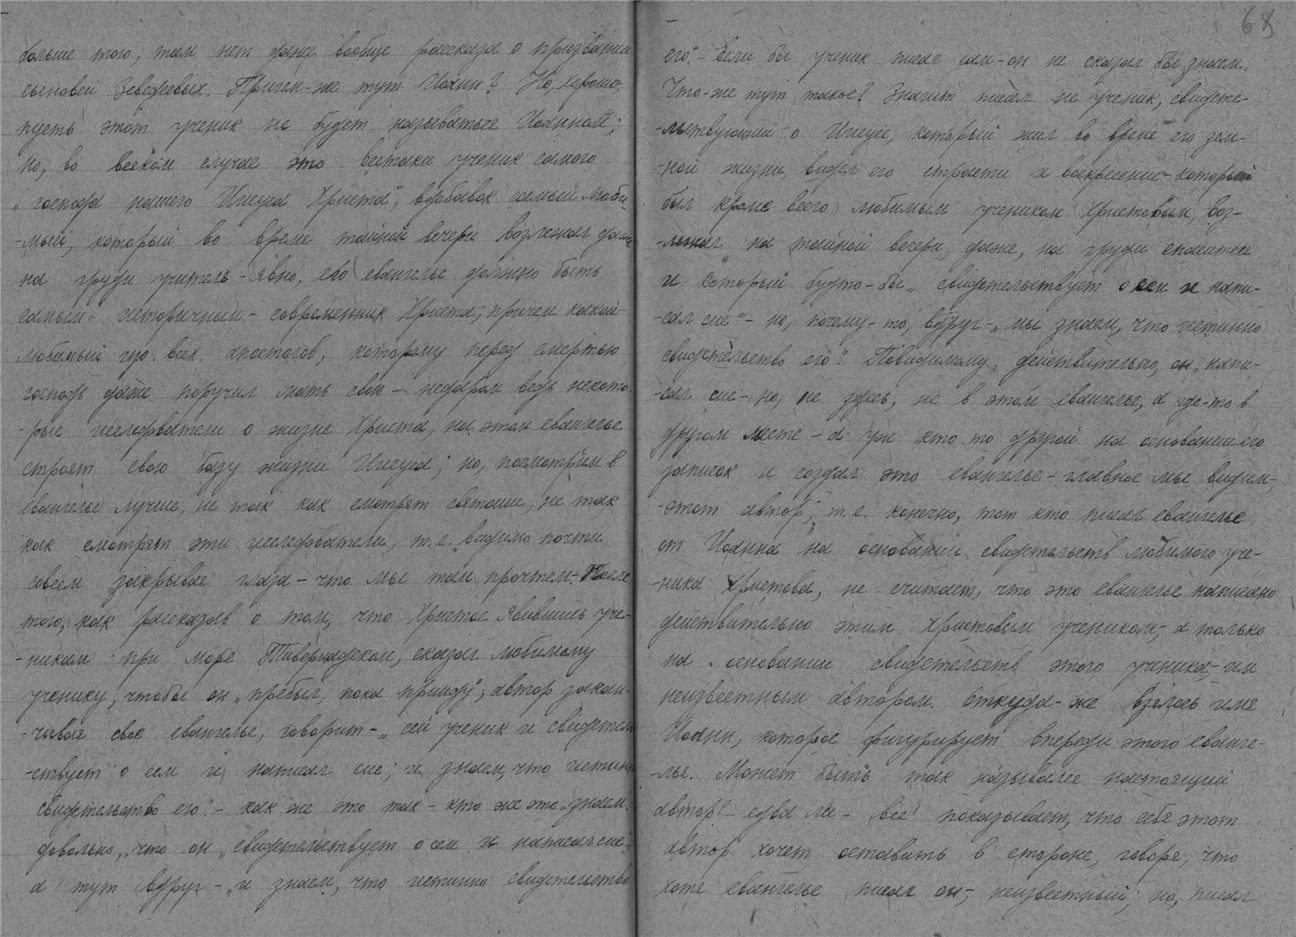 больше того, там нет даже вообще рассказа о призвании
сыновей Зеведеевых. Причем-же тут Иоанн? Но, хорошо,
пусть этот ученик не будет называться Иоанном;
но, во всяком случае это всетаки ученик самого
„господа нашего Иисуса Христа", вдобавок самый люби-
-мый, который во время тайной вечери возлежал даже
на груди учителя - явно, его евангелье должно быть
самым историчным - современник Христа, причем какой-
любимый из всех апостолов, которому перед смертью
господь даже поручил мать свою - недаром ведь некото-
-рые исследователи о жизни Христа, на этом евангелье
строят свою базу жизни Иисуса; но, посмотрим в
евангелье лучше, не так как смотрят святоши, не так
как смотрят эти исследователи, т.е. видимо почти
совсем закрывая глаза - что мы там прочтем - После
того, как рассказав о том, что Христос явившись уче-
-никам при море Тивериадском, сказал любимому
ученику, чтобы он „пребыл, пока прииду"; автор закан-
-чивая свое евангелье, говорит - „сей ученик и свидетель-
-ствует о сем и написал сие; и знаем, что истинно
свидетельство его" - как же это так - кто же это „знаем"
довольно, что он „свидетельствует о сем и написал сие",
а тут вдруг - „и знаем, что истинно свидетельство
68
его". - Если бы ученик писал сам - он не сказал бы знаем.
Что-же тут такое? Значит писал не ученик, свидете-
-льствующий о Иисусе, который жил во время его зем-
-ной жизни, видел его страсти и воскресение - который
был кроме всего любимым учеником Христовым, воз-
-лежал на тайной вечери, даже, на груди спасителя
и который будто-бы „свидетельствует о сем и напи-
-сал сие" - но, почему-то, вдруг - „мы знаем, что истинно
свидетельство его"? Повидимому, действительно, он, напи-
-сал сие - но, не здесь, не в этом евангелье, а где-то в
другом месте - а уж кто то другой на основании его
записок и создал это евангелье - главное мы видим,
-этот автор, т.е. конечно, тот кто писал евангелье
от Иоанна на основании свидетельств любимого уче-
-ника Христова, не считает, что это евангелье написано
действительно этим Христовым учеником, а только
на основании свидетельств этого ученика - им
неизвестным автором. Откуда-же взялось имя
Иоанн, которое фигурирует впереди этого еванге-
-лья. Может быть так назывался настоящий
автор? - едва ли - все показывает, что себя этот
автор хочет оставить в стороне, говоря, что
хотя евангелье писал он, неизвестный; но, писал